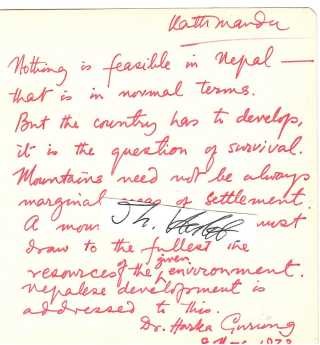 Kathmandu
Nothing is feasible in Nepal —
that is in normal terms.
But the country has to develop,
it is the question of survival.
Mountains need not be always
marginal of settlement.
A must
draw to the fullest the
resources of the given environment.
Nepalese development is
addressed to this.
Dr. Harka Gurung